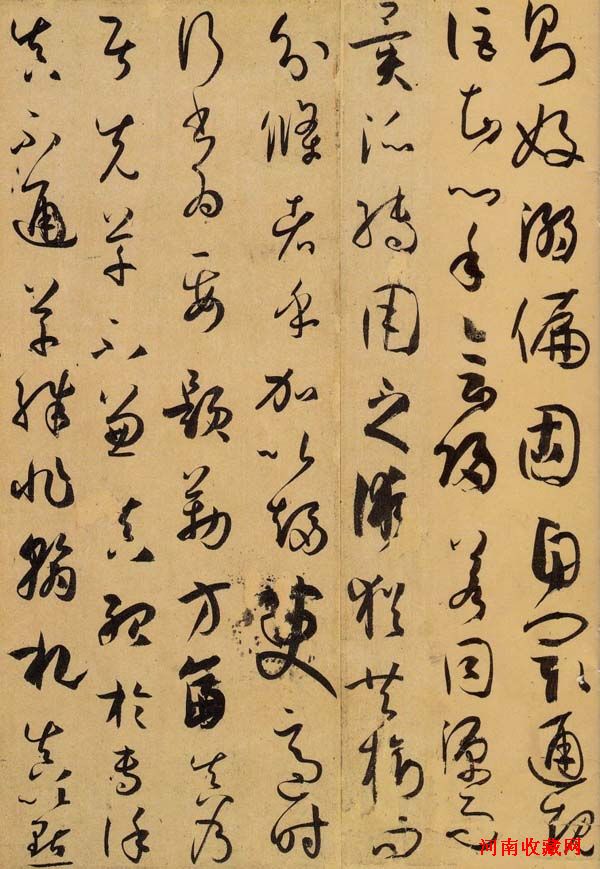 則好溺偏固自閡通規
詎知心手會歸若同源而
異派轉用之術猶共樹而
分條者乎加以趨變適時
行書為要題勒方畐真乃
居先草不兼真殆於專謹
真不通草殊非翰札真以點
河南收藏网